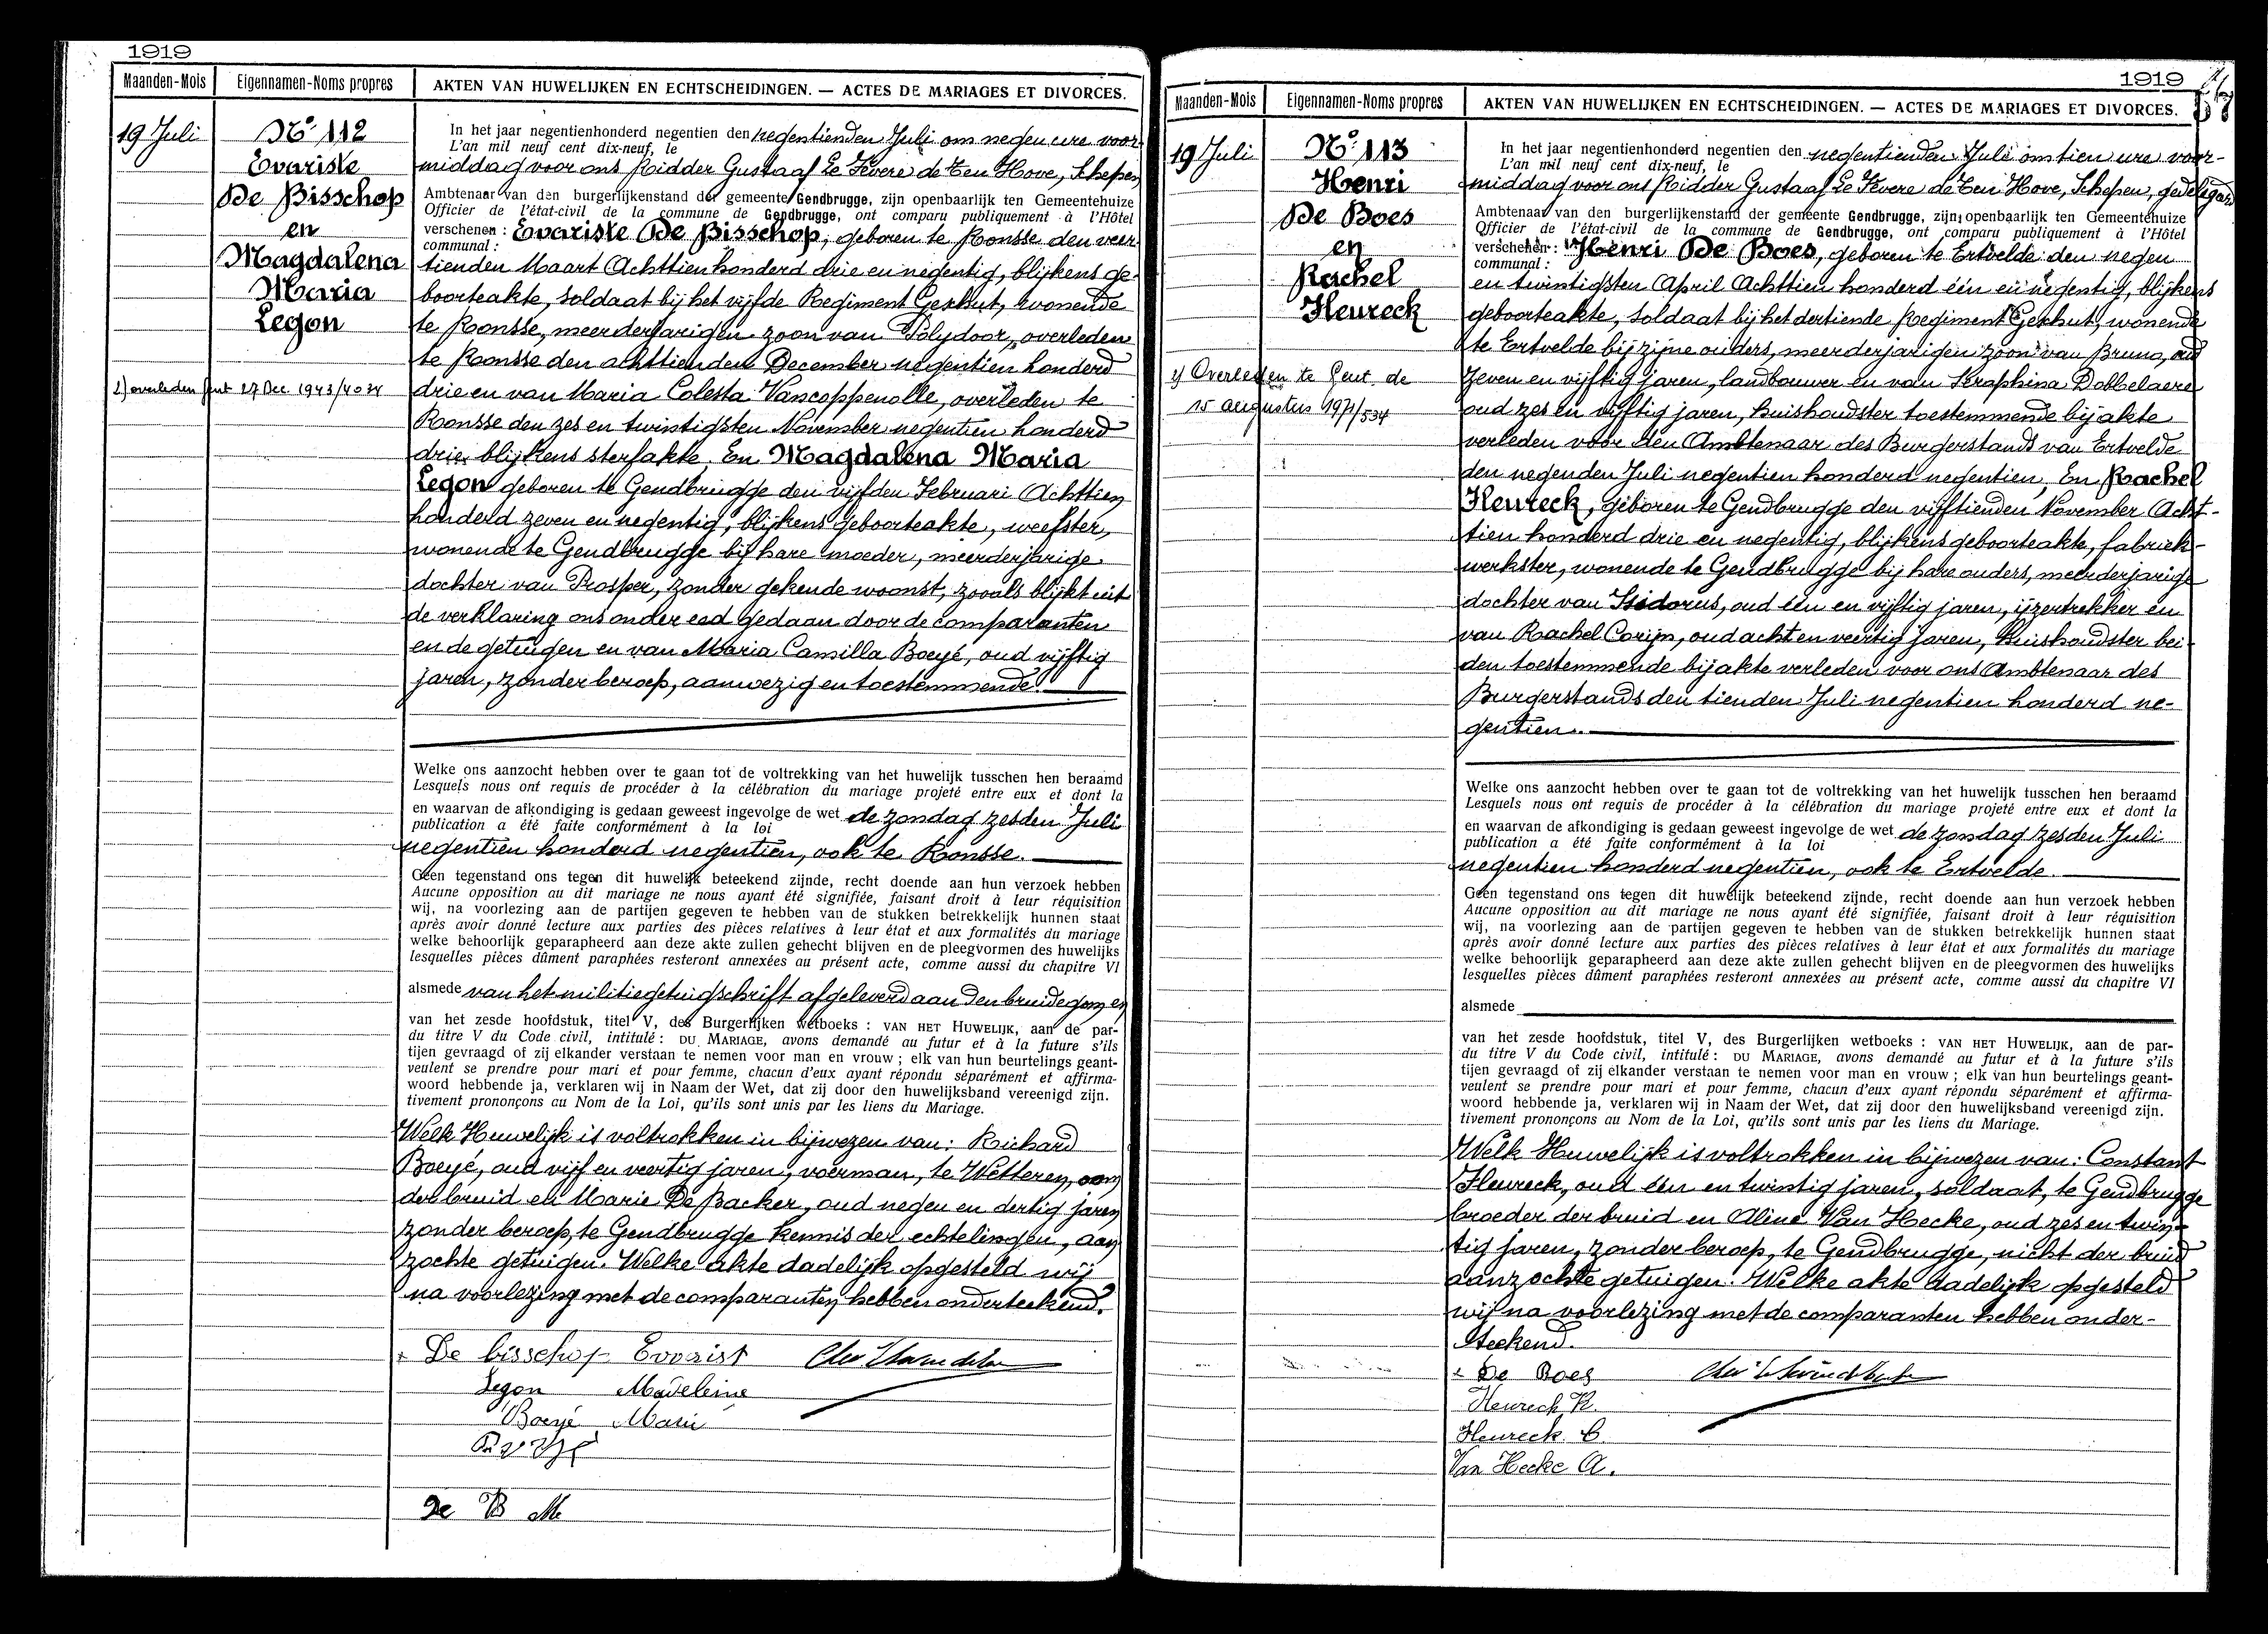 1919
Maanden-Mois
Eigennamen-Noms propres
AKTEN VAN HUWELIJKEN EN ECHTSCHEIDINGEN. — ACTES DE MARIAGES ET DIVORCES.
19 Juli
No 112
Evariste
De Bisschop
en
Magdalena
Maria
Legon
2) overleden Gent 27 Dec. 1943/4034
In het jaar negentienhonderd negentien den negentienden Juli om negen ure voor-
L'an mil neuf cent dix-neuf, le
middag voor ons Ridder Gustaaf Le Fevere de Ten Hove, Schepen
Ambtenaar van den burgerlijkenstand der gemeente Gendbrugge, zijn openbaarlijk ten Gemeentehuize
Officier de l'état-civil de la commune de Gendbrugge, ont comparu publiquement à l'Hôtel
verschenen : Evariste De Bisschop, geboren te Ronsse den veer-
communal :
tienden Maart Achttien honderd drie en negentig, blijkens ge-
boorteakte, soldaat bij het vijfde Regiment Geschut, wonende
te Ronsse, meerderjarigen zoon van Polydoor, overleden
te Ronsse den achttienden December negentien honderd
drie en van Maria Colesta Vancoppenolle, overleden te
Ronsse den zes en twintigsten November negentien honderd
drie, blijkens sterfakte. En Magdalena Maria
Legon geboren te Gendbrugge den vijfden Februari Achttien
honderd zeven en negentig, blijkens geboorteakte, weefster,
wonende te Gendbrugge bij hare moeder, meerderjarige
dochter van Prosper, zonder gekende woonst, zooals blijkt uit
de verklaring ons onder eed gedaan door de comparanten
en de getuigen en van Maria Camilla Boeyé, oud vijftig
jaren, zonder beroep, aanwezig en toestemmende.
Welke ons aanzocht hebben over te gaan tot de voltrekking van het huwelijk tusschen hen beraamd
Lesquels nous ont requis de procéder à la célébration du mariage projeté entre eux et dont la
en waarvan de afkondiging is gedaan geweest ingevolge de wet de zondag zesden Juli
publication a été faite conformément à la loi
negentien honderd negentien, ook te Ronsse.
Geen tegenstand ons tegen dit huwelijk beteekend zijnde, recht doende aan hun verzoek hebben
Aucune opposition au dit mariage ne nous ayant été signifiée, faisant droit à leur réquisition
wij, na voorlezing aan de partijen gegeven te hebben van de stukken betrekkelijk hunnen staat
après avoir donné lecture aux parties des pièces relatives à leur état et aux formalités du mariage
welke behoorlijk geparapheerd aan deze akte zullen gehecht blijven en de pleegvormen des huwelijks
lesquelles pièces dûment paraphées resteront annexées au présent acte, comme aussi du chapitre VI
alsmede van het militiegetuigschrift afgeleverd aan den bruidegom en
van het zesde hoofdstuk, titel V, des Burgerlijken wetboeks : VAN HET HUWELIJK, aan de par-
du titre V du Code civil, intitulé : DU MARIAGE, avons demandé au futur et à la future s'ils
tijen gevraagd of zij elkander verstaan te nemen voor man en vrouw ; elk van hun beurtelings geant-
veulent se prendre pour mari et pour femme, chacun d'eux ayant répondu séparément et affirma-
woord hebbende ja, verklaren wij in Naam der Wet, dat zij door den huwelijksband vereenigd zijn.
tivement prononçons au Nom de la Loi, qu'ils sont unis par les liens du Mariage.
Welk Huwelijk is voltrokken in bijwezen van: Richard
Boeyé, oud vijf en veertig jaren, voerman, te Wetteren, oom
der bruid en Marie De Backer, oud negen en dertig jaren
zonder beroep, te Gendbrugge kennis der echtelingen, aan
zochte getuigen. Welke akte dadelijk opgesteld wij
na voorlezing met de comparanten hebben onderteekend.
x De bisschop Evarist
Legon Madeleine
Boeyé Marie
De B M
1919
57
Maanden-Mois
Eigennamen-Noms propres
AKTEN VAN HUWELIJKEN EN ECHTSCHEIDINGEN. — ACTES DE MARIAGES ET DIVORCES.
19 Juli
No 113
Henri
De Boes
en
Rachel
Heureck
1) Overleden te Gent de
15 augustus 1971/534
In het jaar negentienhonderd negentien den negentienden Juli om tien ure voor-
L'an mil neuf cent dix-neuf, le
middag voor ons Ridder Gustaaf Le Fevere de Ten Hove, Schepen, gedelegeerd
Ambtenaar van den burgerlijkenstand der gemeente Gendbrugge, zijn openbaarlijk ten Gemeentehuize
Officier de l'état-civil de la commune de Gendbrugge, ont comparu publiquement à l'Hôtel
verschenen : Henri De Boes, geboren te Ertvelde den negen
communal :
en twintigsten April Achttien honderd één en negentig, blijkens
geboorteakte, soldaat bij het dertiende Regiment Geschut, wonende
te Ertvelde bij zijne ouders, meerderjarigen zoon van Bruno, oud
zeven en vijftig jaren, landbouwer en van Seraphina Dobbelaere
oud zes en vijftig jaren, huishoudster toestemmende bij akte
verleden voor den Ambtenaar des Burgerstands van Ertvelde
den negenden Juli negentien honderd negentien, En Rachel
Heureck, geboren te Gendbrugge den vijftienden November Acht-
tien honderd drie en negentig, blijkens geboorteakte, fabriek-
werkster, wonende te Gendbrugge bij hare ouders, meerderjarige
dochter van Isidorus, oud één en vijftig jaren, ijzertrekker en
van Rachel Corijn, oud acht en veertig jaren, huishoudster bei-
den toestemmende bij akte verleden voor ons Ambtenaar des
Burgerstands den tienden Juli negentien honderd ne-
gentien.
Welke ons aanzocht hebben over te gaan tot de voltrekking van het huwelijk tusschen hen beraamd
Lesquels nous ont requis de procéder à la célébration du mariage projeté entre eux et dont la
en waarvan de afkondiging is gedaan geweest ingevolge de wet de zondag zesden Juli
publication a été faite conformément à la loi
negentien honderd negentien, ook te Ertvelde.
Geen tegenstand ons tegen dit huwelijk beteekend zijnde, recht doende aan hun verzoek hebben
Aucune opposition au dit mariage ne nous ayant été signifiée, faisant droit à leur réquisition
wij, na voorlezing aan de partijen gegeven te hebben van de stukken betrekkelijk hunnen staat
après avoir donné lecture aux parties des pièces relatives à leur état et aux formalités du mariage
welke behoorlijk geparapheerd aan deze akte zullen gehecht blijven en de pleegvormen des huwelijks
lesquelles pièces dûment paraphées resteront annexées au présent acte, comme aussi du chapitre VI
alsmede
van het zesde hoofdstuk, titel V, des Burgerlijken wetboeks : VAN HET HUWELIJK, aan de par-
du titre V du Code civil, intitulé : DU MARIAGE, avons demandé au futur et à la future s'ils
tijen gevraagd of zij elkander verstaan te nemen voor man en vrouw ; elk van hun beurtelings geant-
veulent se prendre pour mari et pour femme, chacun d'eux ayant répondu séparément et affirma-
woord hebbende ja, verklaren wij in Naam der Wet, dat zij door den huwelijksband vereenigd zijn.
tivement prononçons au Nom de la Loi, qu'ils sont unis par les liens du Mariage.
Welk Huwelijk is voltrokken in bijwezen van: Constant
Heureck, oud één en twintig jaren, soldaat, te Gendbrugge
broeder der bruid en Aline Van Hecke, oud zes en twin-
tig jaren, zonder beroep, te Gendbrugge, nicht der bruid
aanzochte getuigen. Welke akte dadelijk opgesteld
wij na voorlezing met de comparanten hebben onder-
teekend.
x De Boes
Heureck R.
Heureck C.
Van Hecke A.